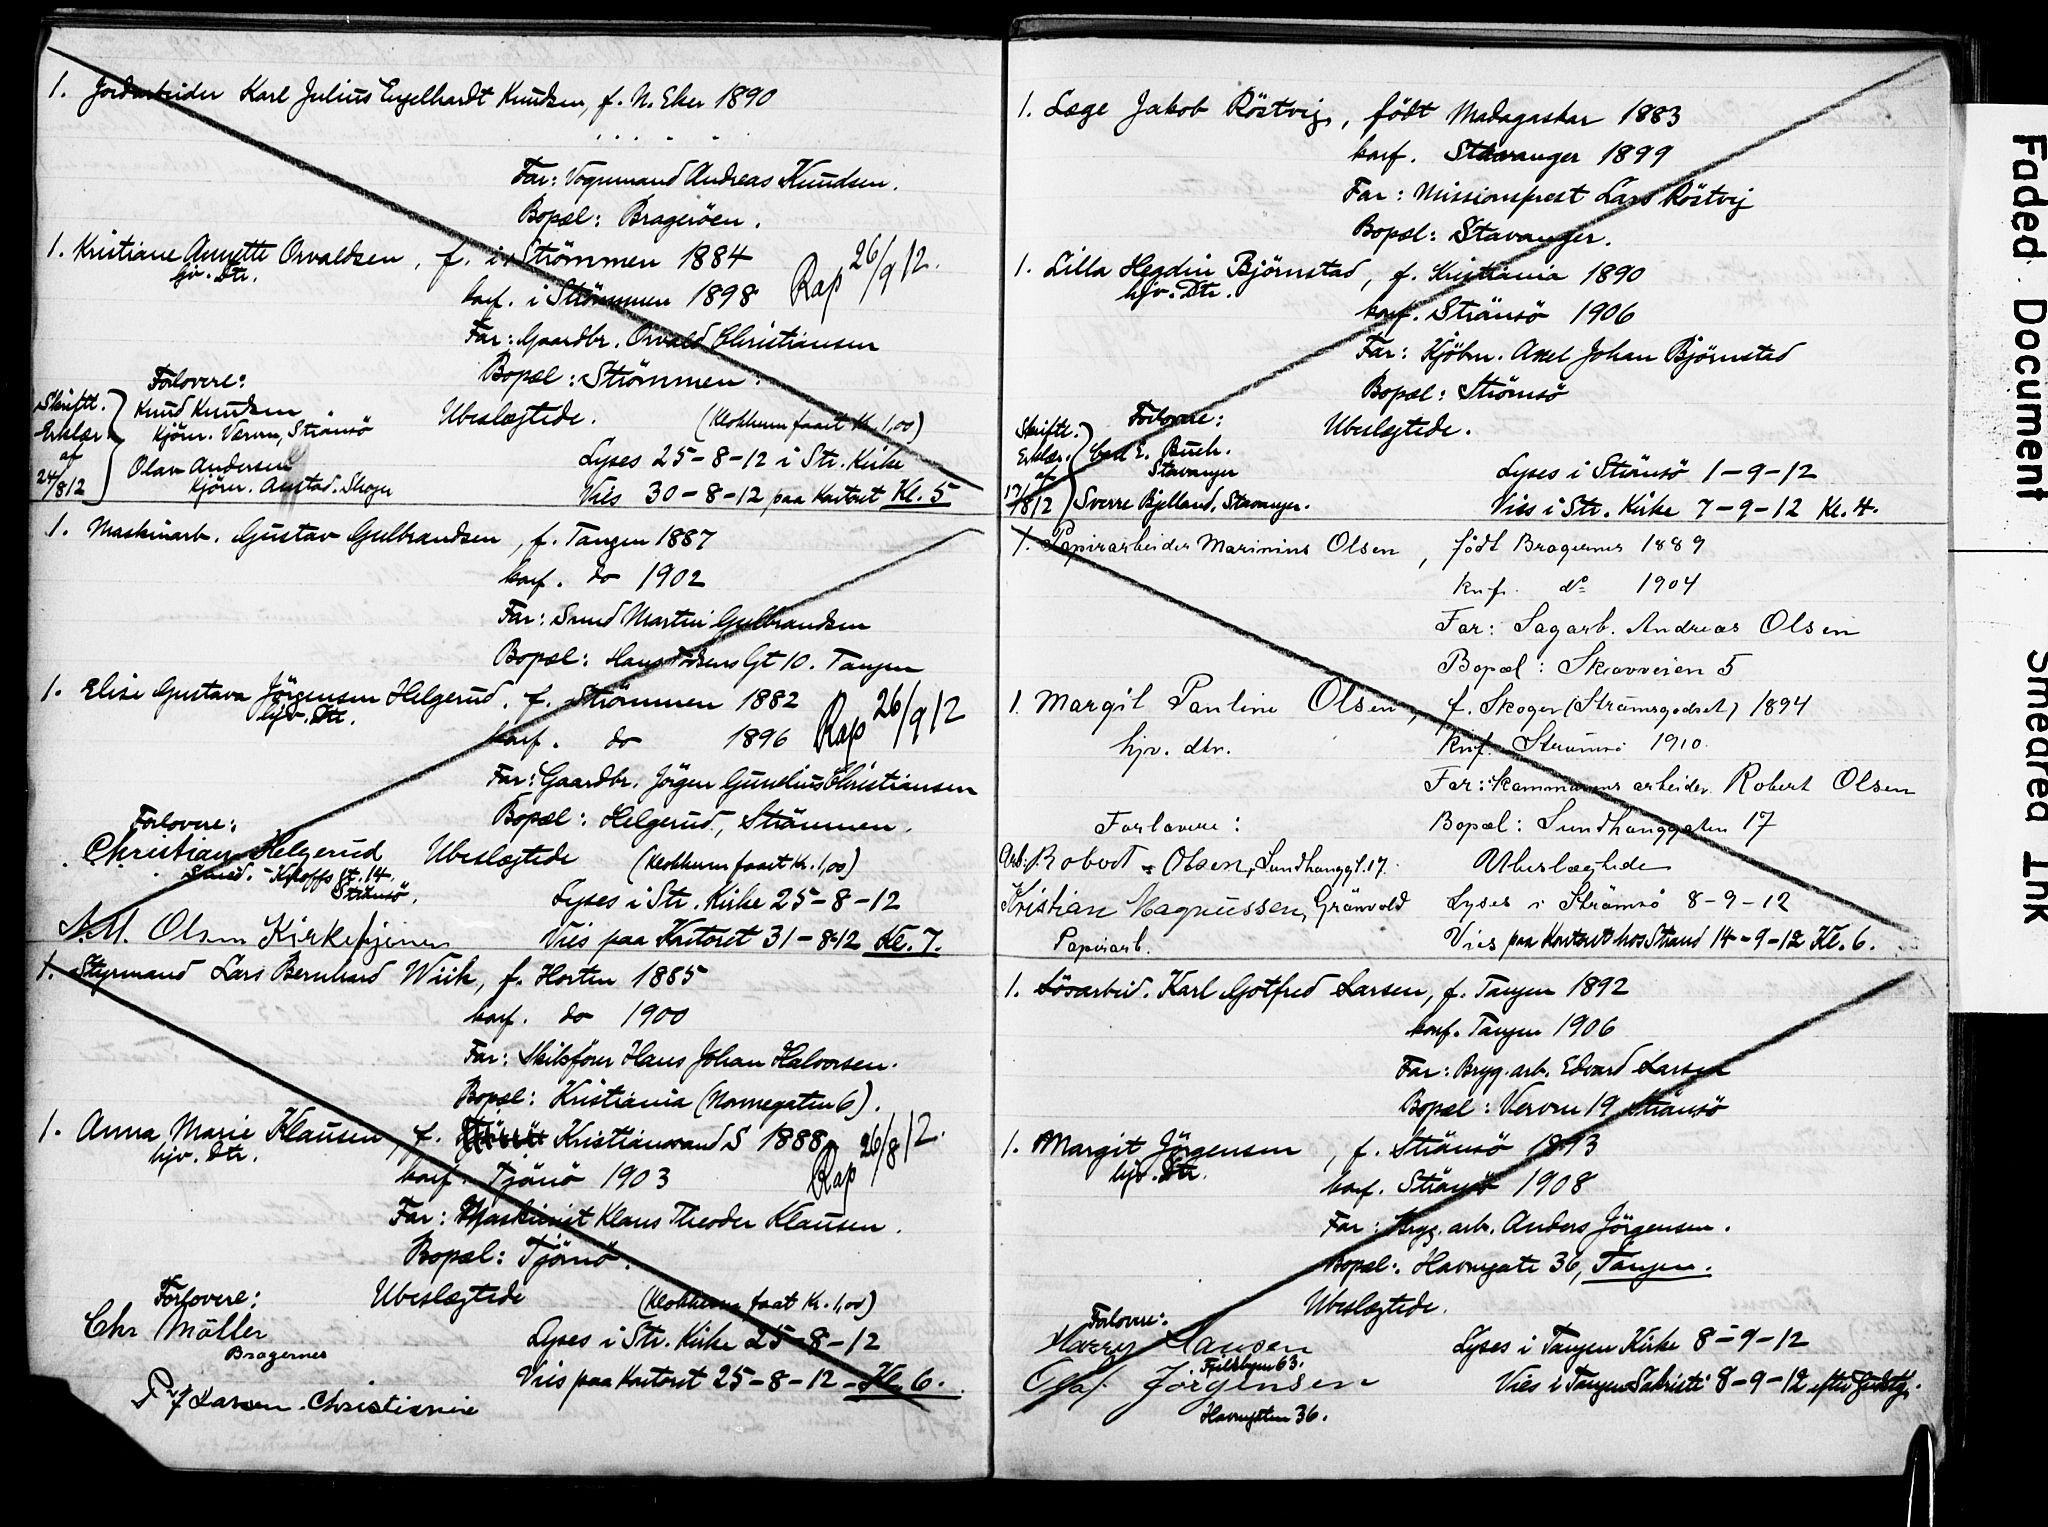 1. Jordarbeider Karl Julius Engelhardt Knudsen, f. N. Eker 1890
Far: Vognmand Andreas Knudsen.
Bopæl: Bragerøen.
1. Kristiane Annette Osvaldsen, f. i Strömmen 1884
hjv. Dtr.
konf. i Strömmen 1898
Rap 26/9 12.
Far: Gaardbr. Osvald Christiansen
Bopæl: Strömmen.
Forlovere:
Skriftl. Erklær. af 24/8 12
Knud Knudsen
Kjörer. Værven, Strömsö
Olav Andersen
Kjörer. Skoger
Ubeslægtede.
(Klokkeren faaet Kr. 1,00)
Lyses 25-8-12 i Str. Kirke
Vies 30-8-12 paa Kontoret Kl. 5
1. Maskinarb. Gustav Gulbrandsen, f. Tangen 1887
konf. do 1902
Far: Smed Martin Gulbrandsen
Bopæl: Hans Gt 10. Tangen
1. Elise Gustava Jörgensen Helgerud, f. Strömmen 1882
hjv. Dtr.
konf. do 1896
Rap 26/9 12
Far: Gaardbr. Jörgen Gunelius Christiansen
Bopæl: Helgerud, Strömmen.
Forlovere:
Christian Helgerud
Smed. Knoffs Gt. 14.
Strömsö.
Ubeslægtede
(Klokkeren faaet Kr. 1,00)
Lyses i Str. Kirke 25-8-12
N.M. Olsen Kirketjener
Vies paa Kontoret 31-8-12 Kl. 7.
1. Styrmand Lars Bernhard Wiik, f. Horten 1885
konf. do 1900
Far: Skibsförer Hans Johan Halvorsen.
Bopæl: Kristiania (Normegaten 6).
1. Anna Marie Klausen, f. Kristianssand S 1888
hjv. Dtr.
konf. Tjömö 1903
Rap 26/8 12.
Far: Maskinist Klaus Theodor Klausen.
Bopæl: Tjömö.
Forlovere:
Chr Möller
Bragernes
Ubeslægtede
(Klokkeren faaet Kr. 1,00)
Lyses i Str. Kirke 25-8-12
Vies paa Kontoret 25-8-12 Kl. 6.
Larsen. Christiania
1. Læge Jakob Röstvig, födt Madagaskar 1883
konf. Stavanger 1899
Far: Missionsprest Lars Röstvig
Bopæl: Stavanger.
1. Lilla Hegdin Björnstad, f. Kristiania 1890
hjv. Dtr.
konf. Strömsö 1906
Far: Kjöbm. Axel Johan Björnstad
Bopæl: Strömsö
Forlovere:
Ubeslægtede.
Skriftl. Erklær. af 17/8 12
Carl E. Buch.
Stavanger
Sverre Bjelland, Stavanger.
Lyses i Strömsö 1-9-12
Vies i Str. Kirke 7-9-12 Kl. 4.
1. Papirarbeider Marinius Olsen, födt Bragernes 1889
knf. do 1904
Far: Sagarb. Andreas Olsen
Bopæl: Skovveien 5
1. Margit Pauline Olsen, f. Skoger (Strömsgodset) 1894
hjv. dtr.
knf. Strömsö 1910.
Far: Kommunens arbeider Robert Olsen
Forlovere:
Bopæl: Sundhauggaten 17
Arb. Robert Olsen, Sundhauggt. 17.
Ubeslægtede
Kristian Magnussen, Grönvold
Papirarb.
Lyses i Strömsö 8-9-12
Vies paa Kontoret hos Strand 14-9-12 Kl. 6.
1. Lösarbeid. Karl Gotfred Larsen, f. Tangen 1892
konf. Tangen 1906
Far: Bryg. arb. Edvard Larsen
Bopæl: Verven 19 Strömsö
1. Margit Jörgensen, f. Strömsö 1893
hjv. Dtr.
konf. Strömsö 1908
Far: Bryg. arb. Anders Jörgensen.
Bopæl: Havnegate 36, Tangen.
Ubeslægtede.
Forlovere:
Harry Hansen
Fjeldbyen 63.
Olaf Jörgensen
Havnegaten 36.
Lyses i Tangen Kirke 8-9-12
Vies i Tangen Sakristi 8-9-12 efter Gudstj.
Faded Document
Smeared Ink